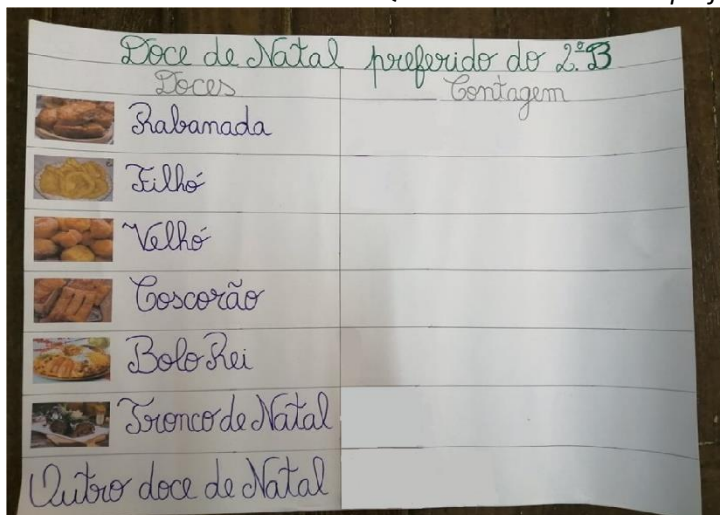 Doce de Natal preferido do 2.ºB
Doces Contagem
Rabanada
Filhó
Velhó
Coscorão
Bolo Rei
Tronco de Natal
Outro doce de Natal